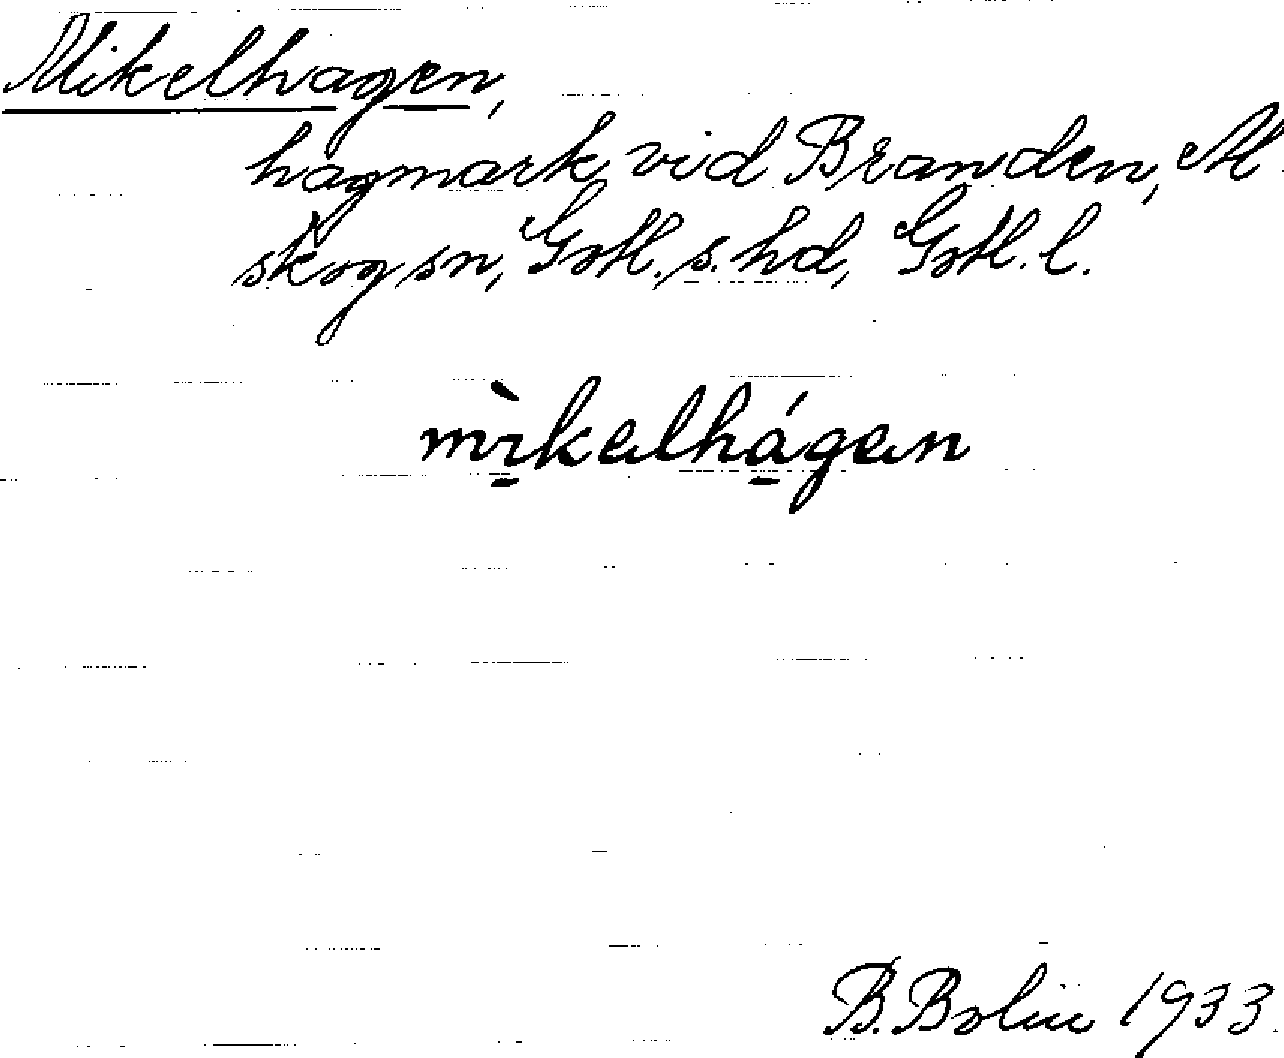 Mikelhagen,
hagmark vid Branden, M
skog sn, Gotl. s. hd, Gotl. l.
mìkelhágen
B. Bolin 1933.